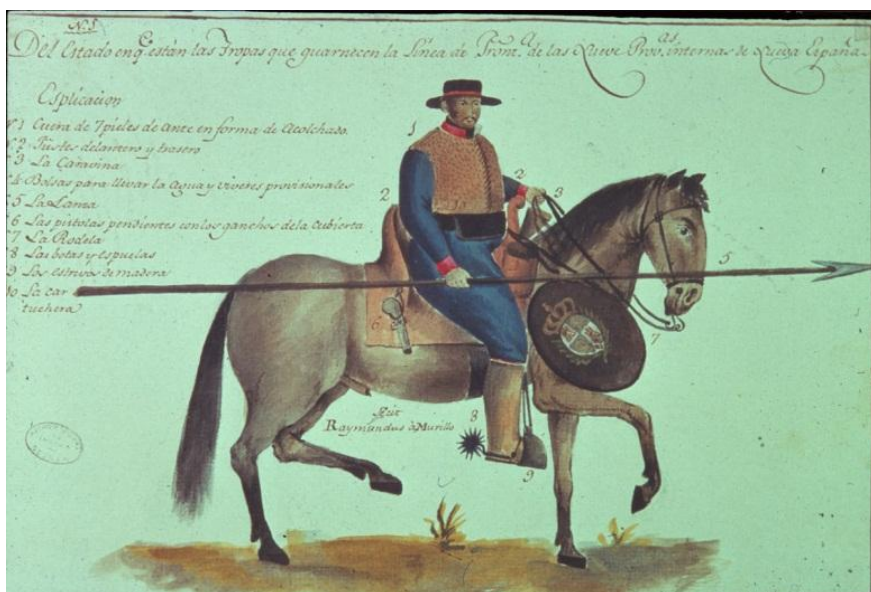 N.5
Del Estado en q.e están las Tropas que guarnecen la Línea de Front.a de las Nueve Prov.as internas de Nueva España.
Esplicacion
N.1 Cuera de 7 pieles de ante en forma de Acolchado.
2 Fustes delantero y trasero
3 La Caravina
4 Bolsas para llevar la Agua y viveres provisionales
5 La Lanza
6 Las pistolas pendientes con los ganchos de la Cubierta
7 La Rodela
8 Las botas y espuelas
9 Los estrivos de madera
10 La car
tuchera
1
2
2
3
5
6
7
8
9
Raymundus à Murillo